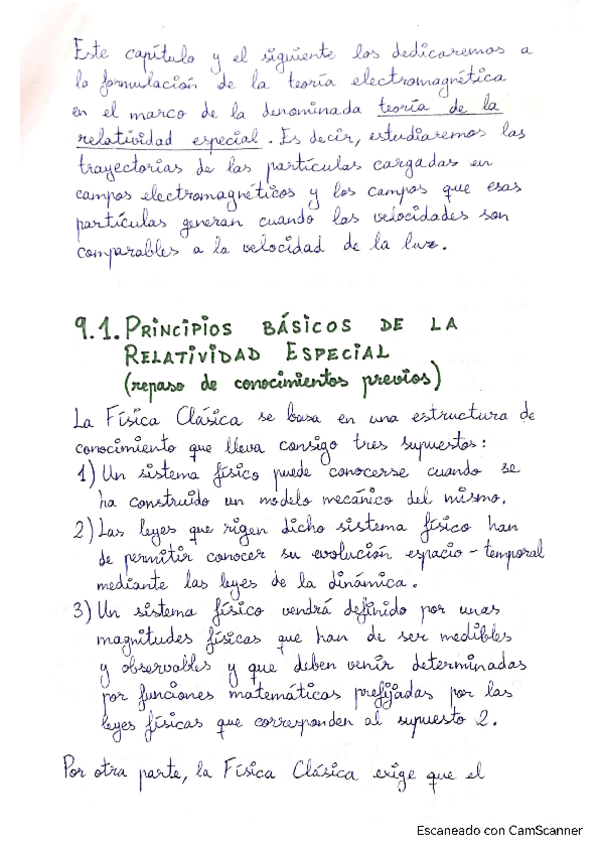 Este capítulo y el siguiente los dedicaremos a
la formulación de la teoría electromagnética
en el marco de la denominada teoría de la
relatividad especial. Es decir, estudiaremos las
trayectorias de las partículas cargadas en
campos electromagnéticos y los campos que esas
partículas generan cuando las velocidades son
comparables a la velocidad de la luz.
9.1. PRINCIPIOS BÁSICOS DE LA
RELATIVIDAD ESPECIAL
(repaso de conocimientos previos)
La Física Clásica se basa en una estructura de
conocimiento que lleva consigo tres supuestos:
1) Un sistema físico puede conocerse cuando se
ha construido un modelo mecánico del mismo.
2) Las leyes que rigen dicho sistema físico han
de permitir conocer su evolución espacio-temporal
mediante las leyes de la dinámica.
3) Un sistema físico vendrá definido por unas
magnitudes físicas que han de ser medibles
y observables y que deben venir determinadas
por funciones matemáticas prefijadas por las
leyes físicas que corresponden al supuesto 2.
Por otra parte, la Física Clásica exige que el
Escaneado con CamScanner